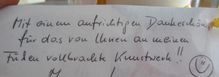 Mit einem aufrichtigen Dankeschön
für das von Ihnen an meinen
Füßen vollbrachte Kunstwerk!!